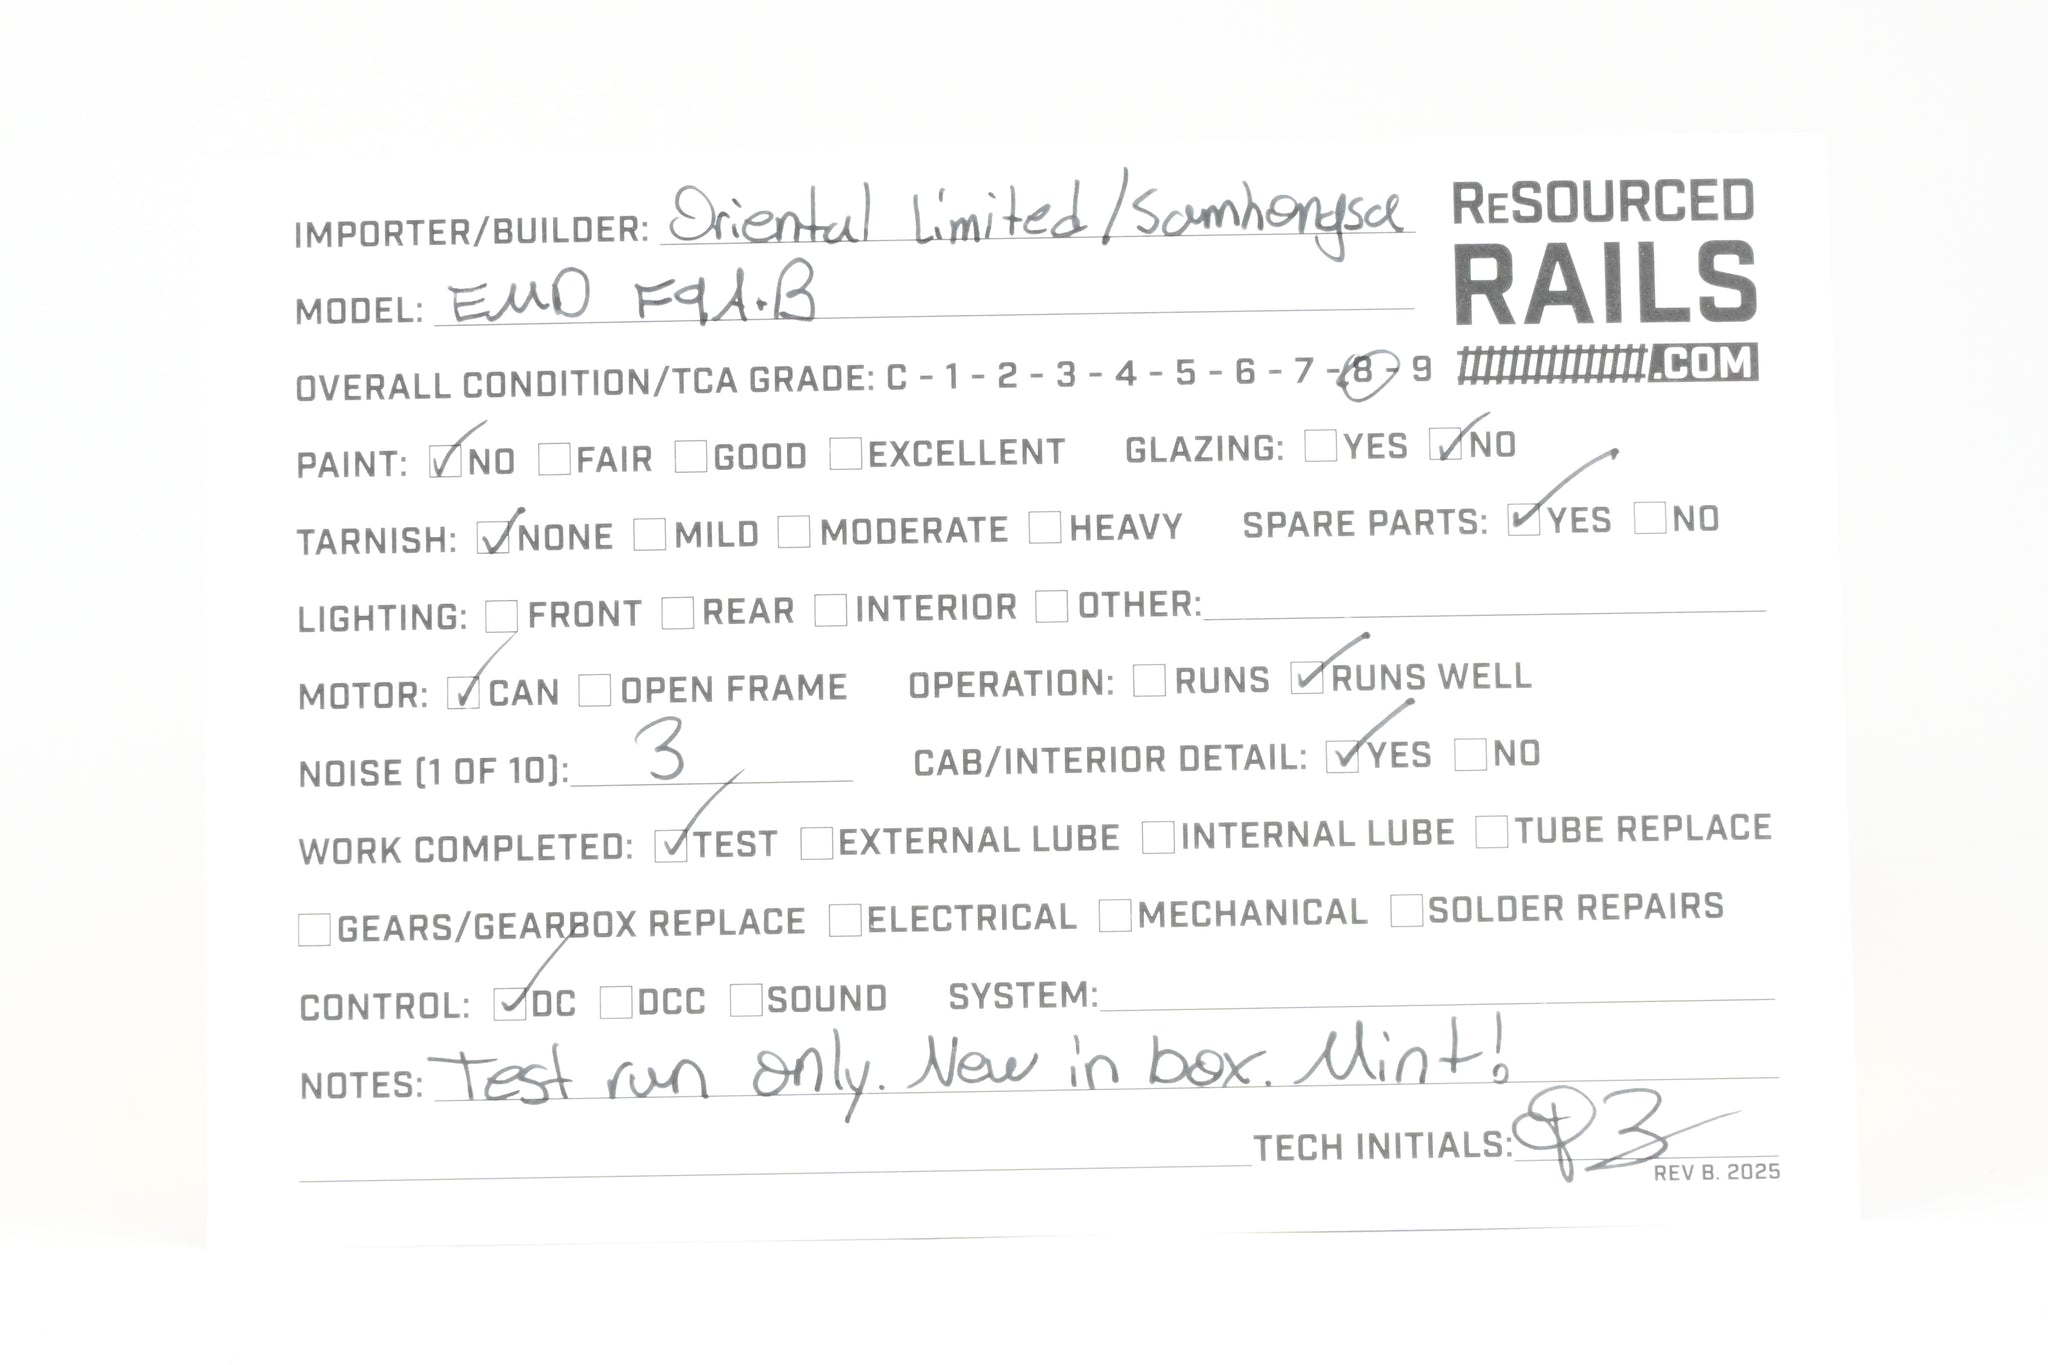 IMPORTER/BUILDER: Oriental Limited/Samhongsa
RESOURCED
RAILS
.COM
MODEL: EMD F9A.B
OVERALL CONDITION/TCA GRADE: C - 1 - 2 - 3 - 4 - 5 - 6 - 7 - 8 - 9
PAINT: NO FAIR GOOD EXCELLENT GLAZING: YES NO
TARNISH: NONE MILD MODERATE HEAVY SPARE PARTS: YES NO
LIGHTING: FRONT REAR INTERIOR OTHER:
MOTOR: CAN OPEN FRAME OPERATION: RUNS RUNS WELL
NOISE (1 OF 10): 3 CAB/INTERIOR DETAIL: YES NO
WORK COMPLETED: TEST EXTERNAL LUBE INTERNAL LUBE TUBE REPLACE
GEARS/GEARBOX REPLACE ELECTRICAL MECHANICAL SOLDER REPAIRS
CONTROL: DC DCC SOUND SYSTEM:
NOTES: Test run only. New in box. Mint!
TECH INITIALS:
REV B. 2025